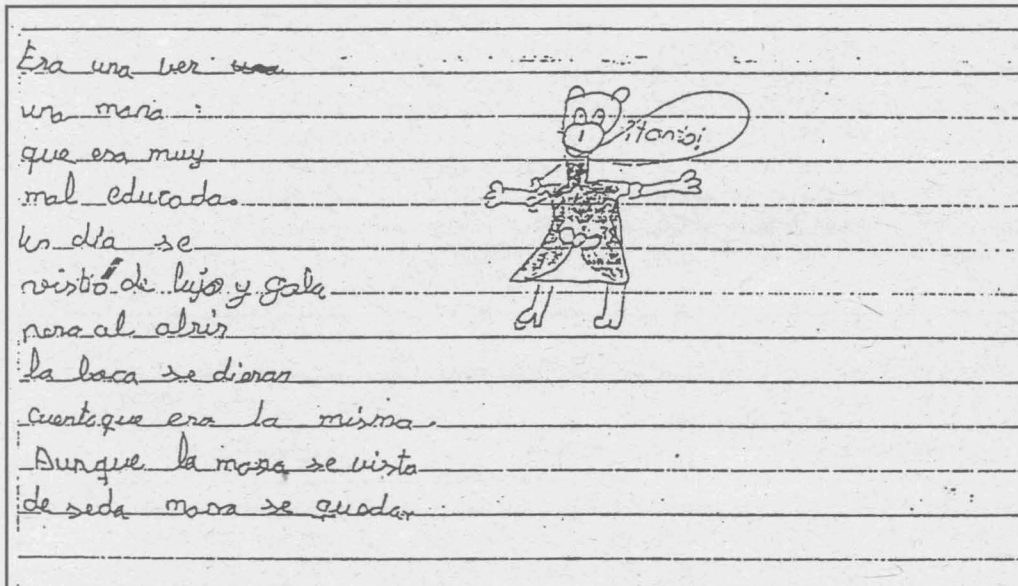 Era una vez
una mona
que era muy
mal educada.
un día se
vistió de lujo y gala
pero al abrir
la boca se dieron
cuenta que era la misma.
Aunque la mona se vista
de seda mona se quedar